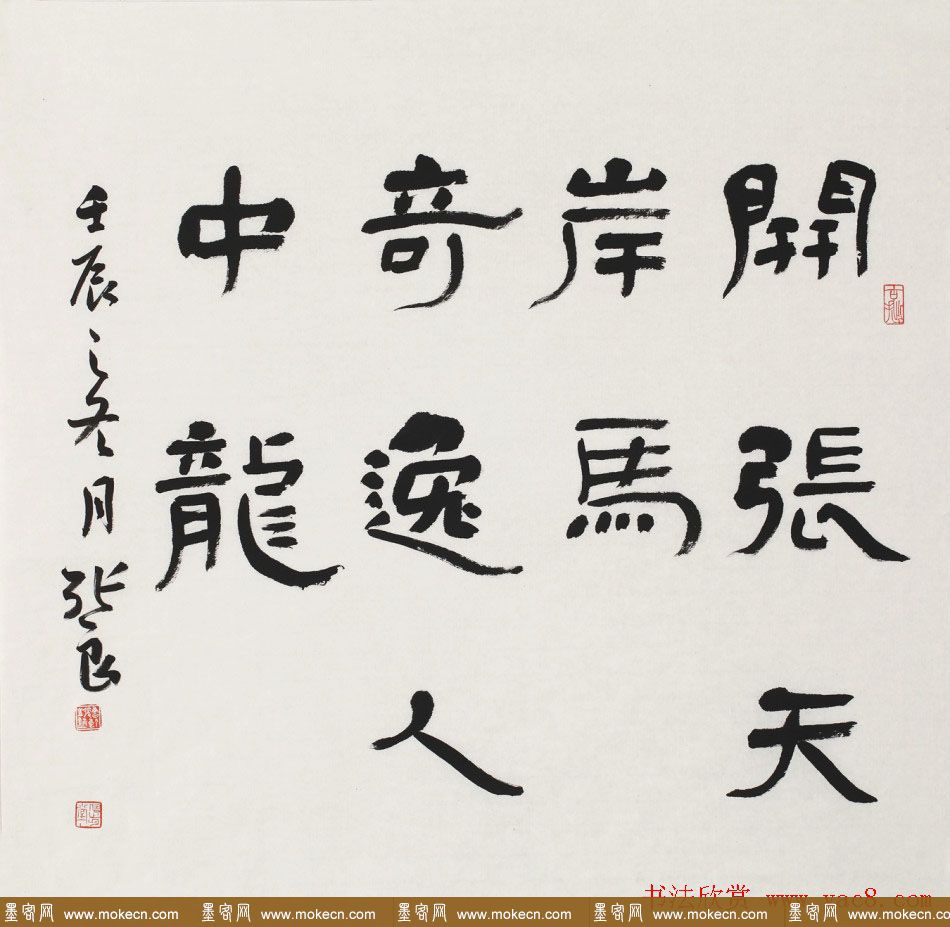 開張天
岸馬
奇逸人
中龍
壬辰之冬月
书法欣赏 www.yac8.com
墨客网 www.mokecn.com 墨客网 www.mokecn.com 墨客网 www.mokecn.com 墨客网 www.mokecn.com 墨客网 www.mokecn.com